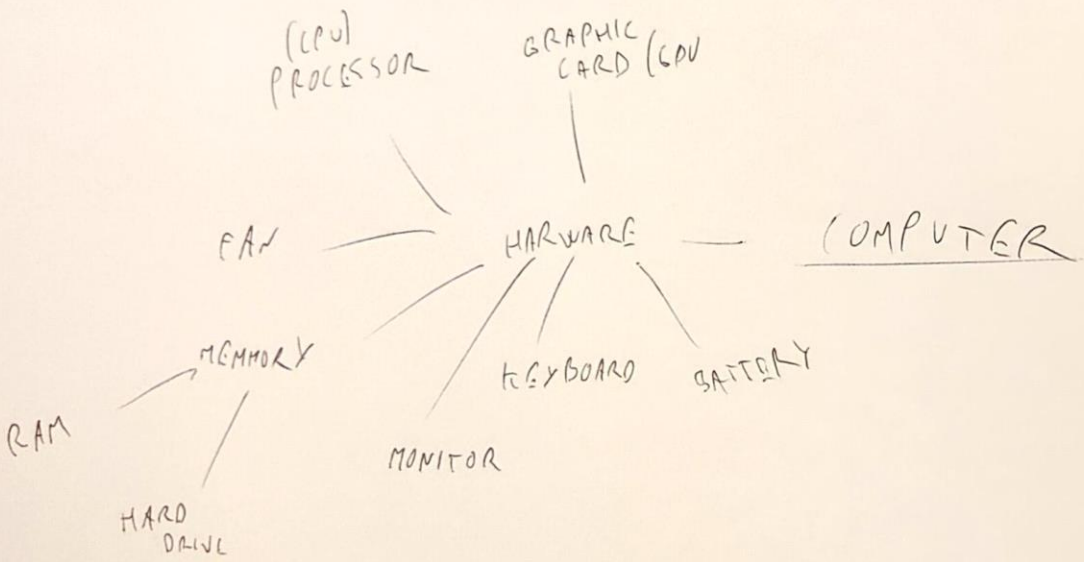 (CPU)
PROCESSOR
GRAPHIC
CARD (GPU
FAN
HARWARE
COMPUTER
MEMMORY
KEYBOARD
BATTERY
RAM
MONITOR
HARD
DRIVE